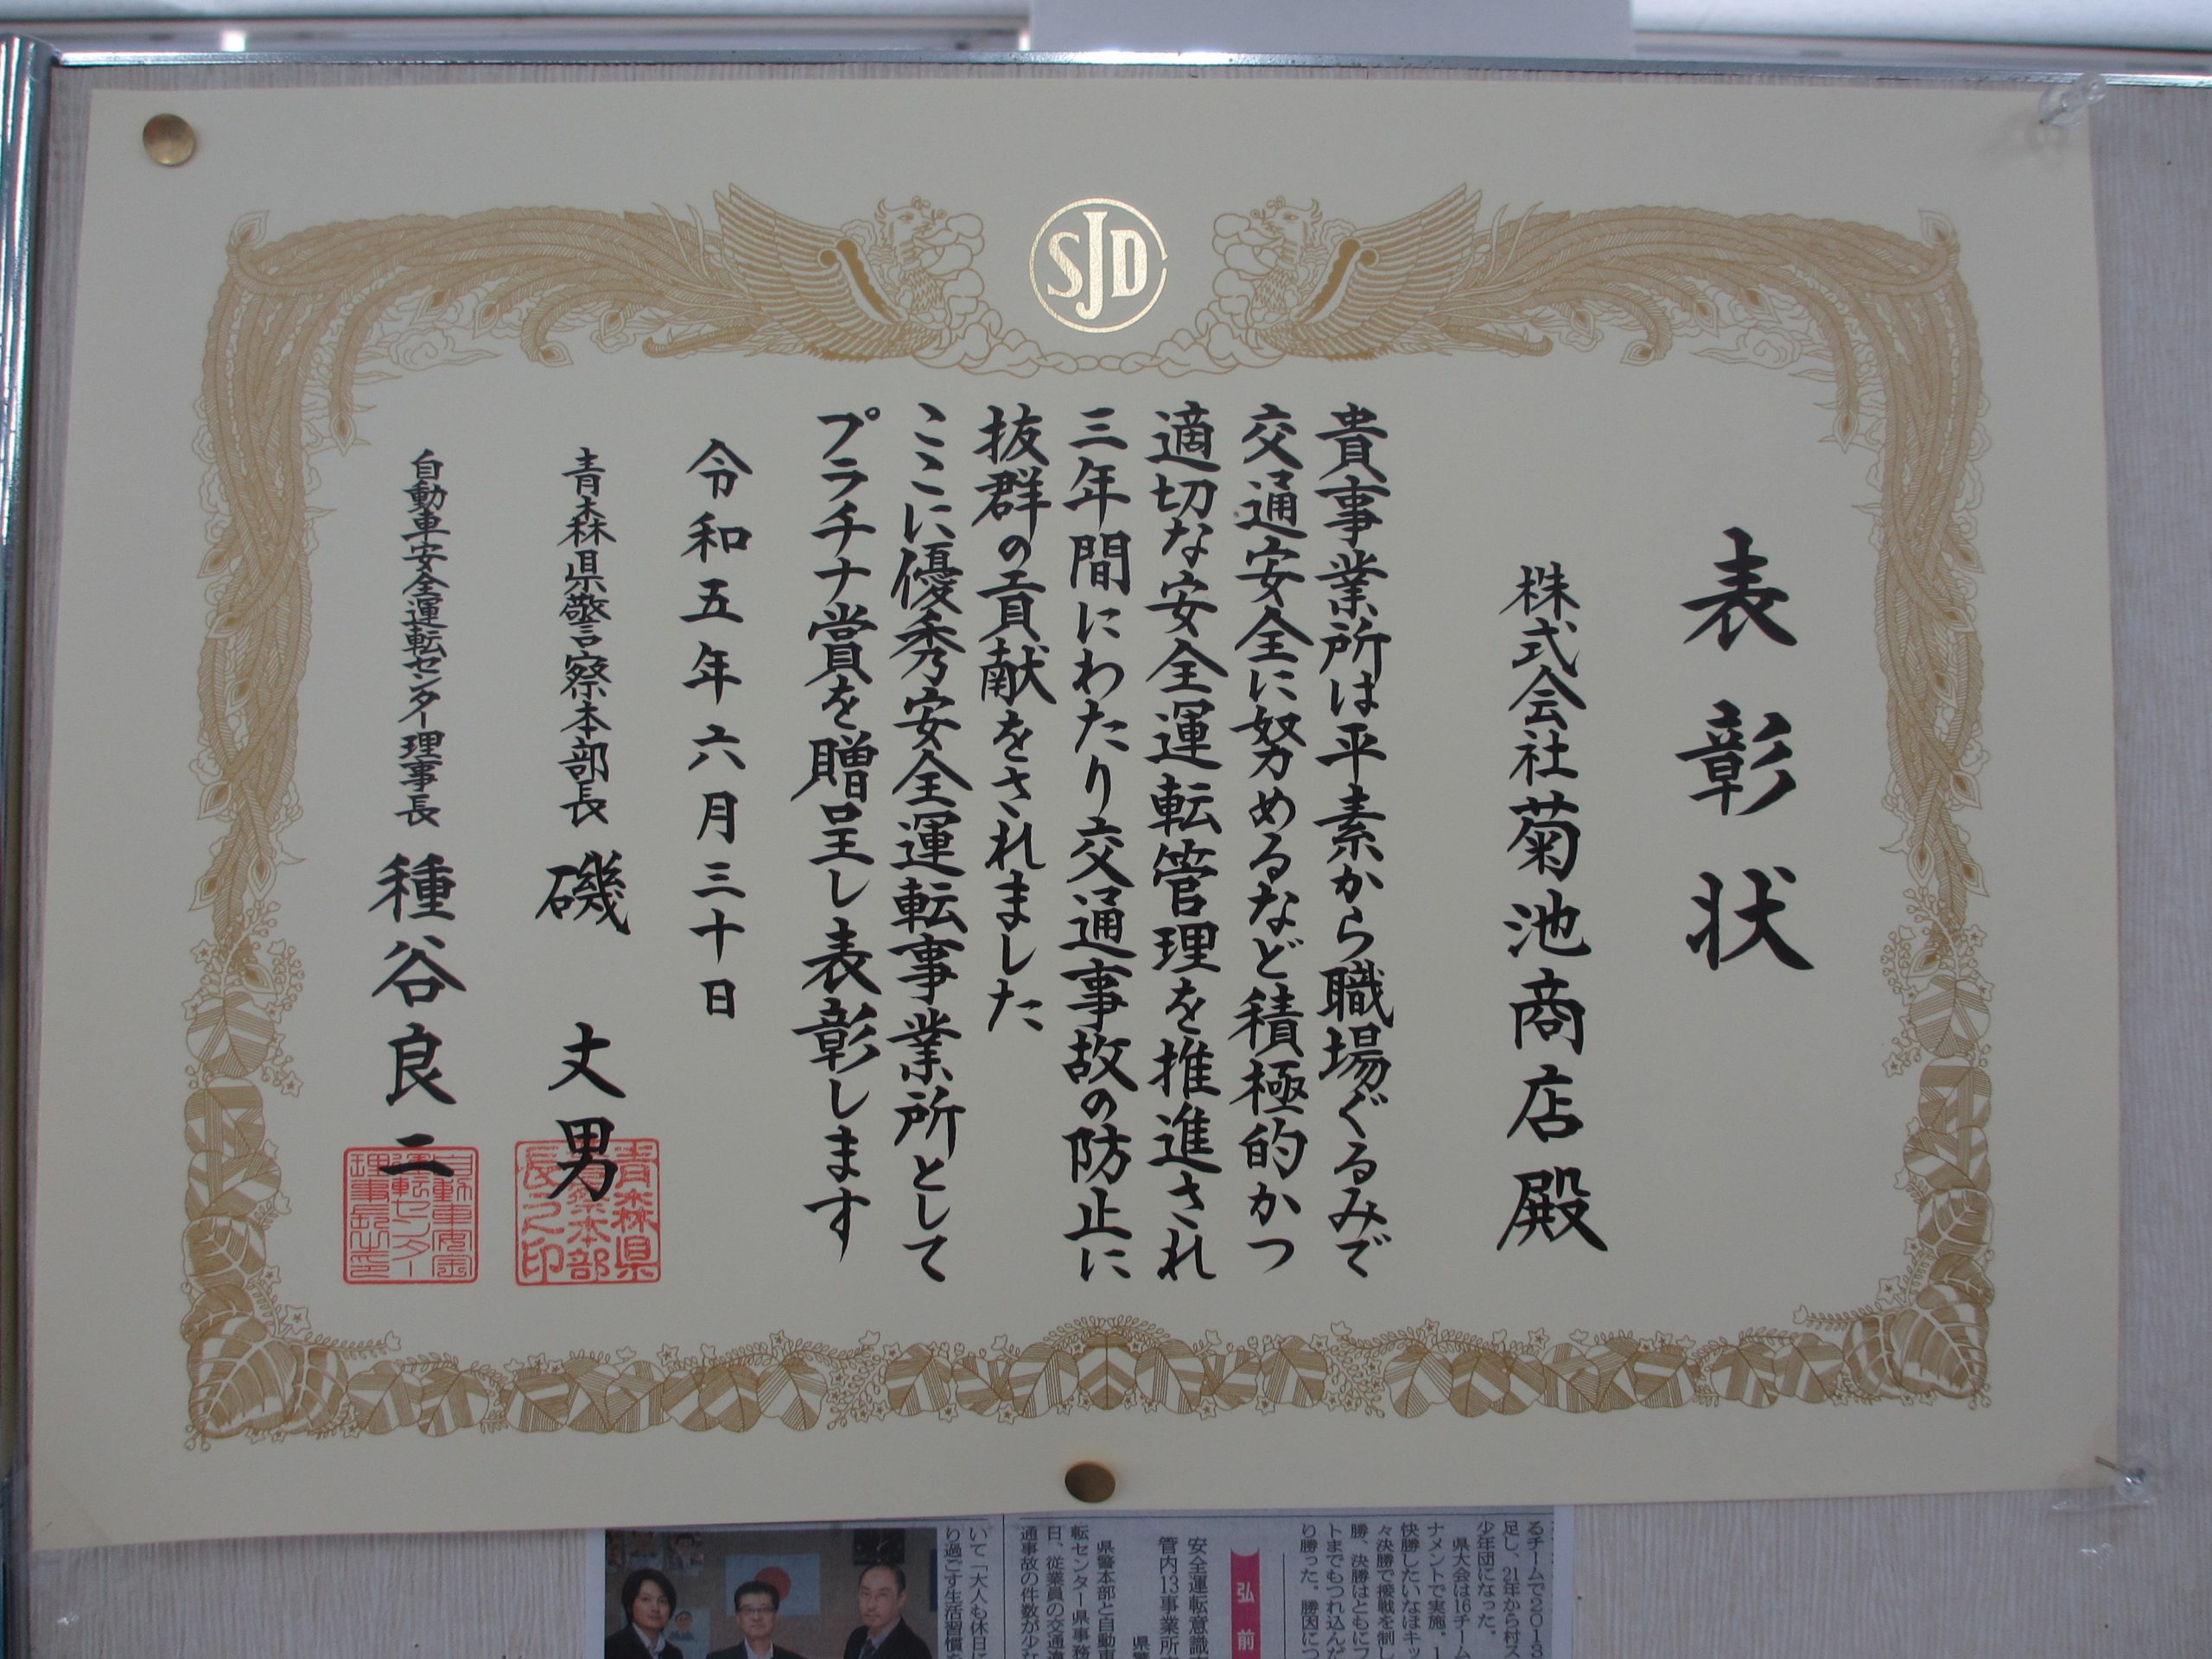 SJD
表彰状
株式会社菊池商店殿
貴事業所は平素から職場ぐるみで
交通安全に努めるなど積極的かつ
適切な安全運転管理を推進され
三年間にわたり交通事故の防止に
抜群の貢献をされました
ここに優秀安全運転事業所として
プラチナ賞を贈呈し表彰します
令和五年六月三十日
青森県警察本部長 磯 丈男
青森県
警察本部
長之印
自動車安全運転センター理事長 種谷良二
自動車安全
運転センター
理事長之印
るチームで2013
足し、21年から村ス
少年団になった。
県大会は16チーム
ナメントで実施。1
快勝したいなほキッ
々決勝で接戦を制し
勝、決勝はともにフ
トまでもつれ込んだ
り勝った。勝因につ
弘前
安全運転意識
管内13事業所
県警
県警本部と自動車
転センター県事務
日、従業員の交通違
通事故の件数が少な
いて「大人も休日に
り過ごす生活習慣を